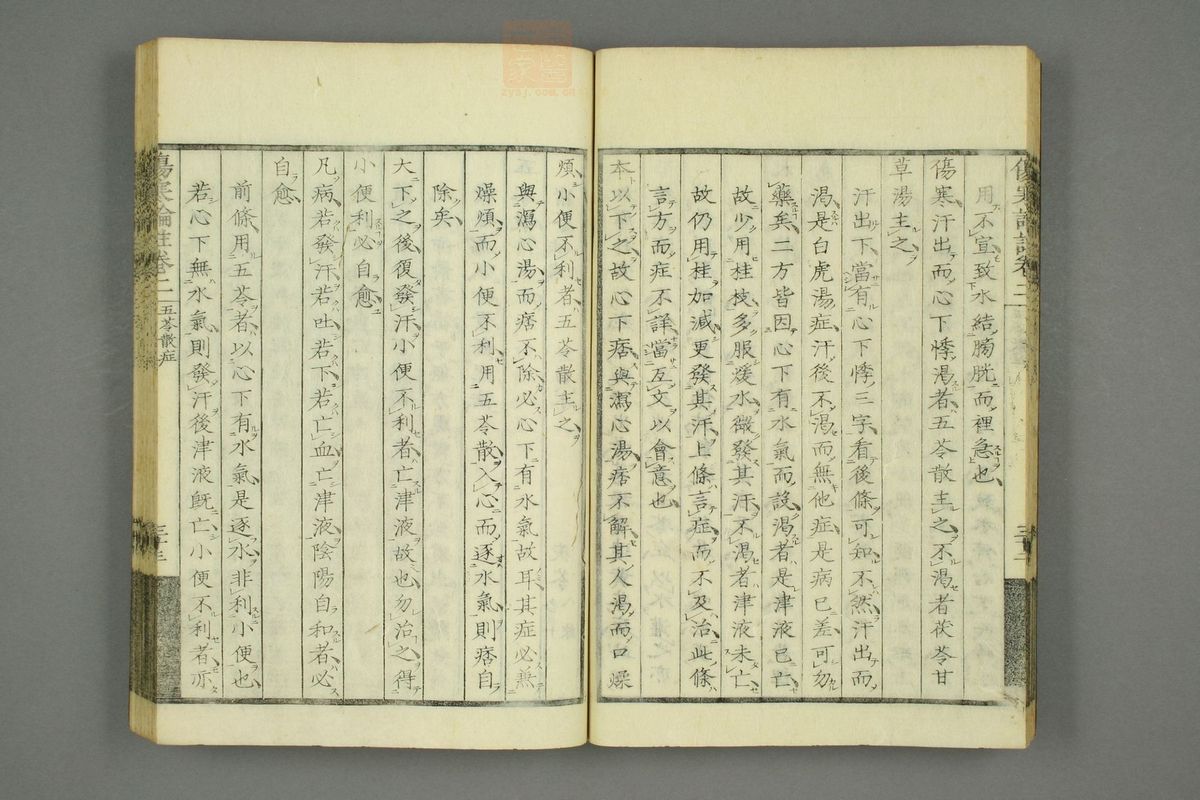 用不宣致水結膀胱而裡急也
傷寒汗出而心下悸渴者五苓散主之不渴者茯苓甘
草湯主之
汗出下當有心下悸三字看後條可知不然汗出而
渴是白虎湯症汗後不渴而無他症是病已差可勿
藥矣二方皆因心下有水氣而設渴者是津液已亡
故少用桂枝多服煖水微發其汗不渴者津液未亡
故仍用桂加減更發其汗上條言症而不及治此條
言方而症不詳當互文以會意也
本以下之故心下痞與瀉心湯痞不解其人渴而口燥
煩小便不利者五苓散主之
與瀉心湯而痞不除必心下有水氣故耳其症必無
燥煩而小便不利用五苓散入心而逐水氣則痞自
除矣
大下之後復發汗小便不利者亡津液故也勿治之得
小便利必自愈
凡病若發汗若吐若下若亡血亡津液陰陽自和者必
自愈
前條用五苓者以心下有水氣是逐水非利小便也
若心下無水氣則發汗後津液既亡小便不利者亦
傷寒論註卷二 五苓散症
zysj.com.cn